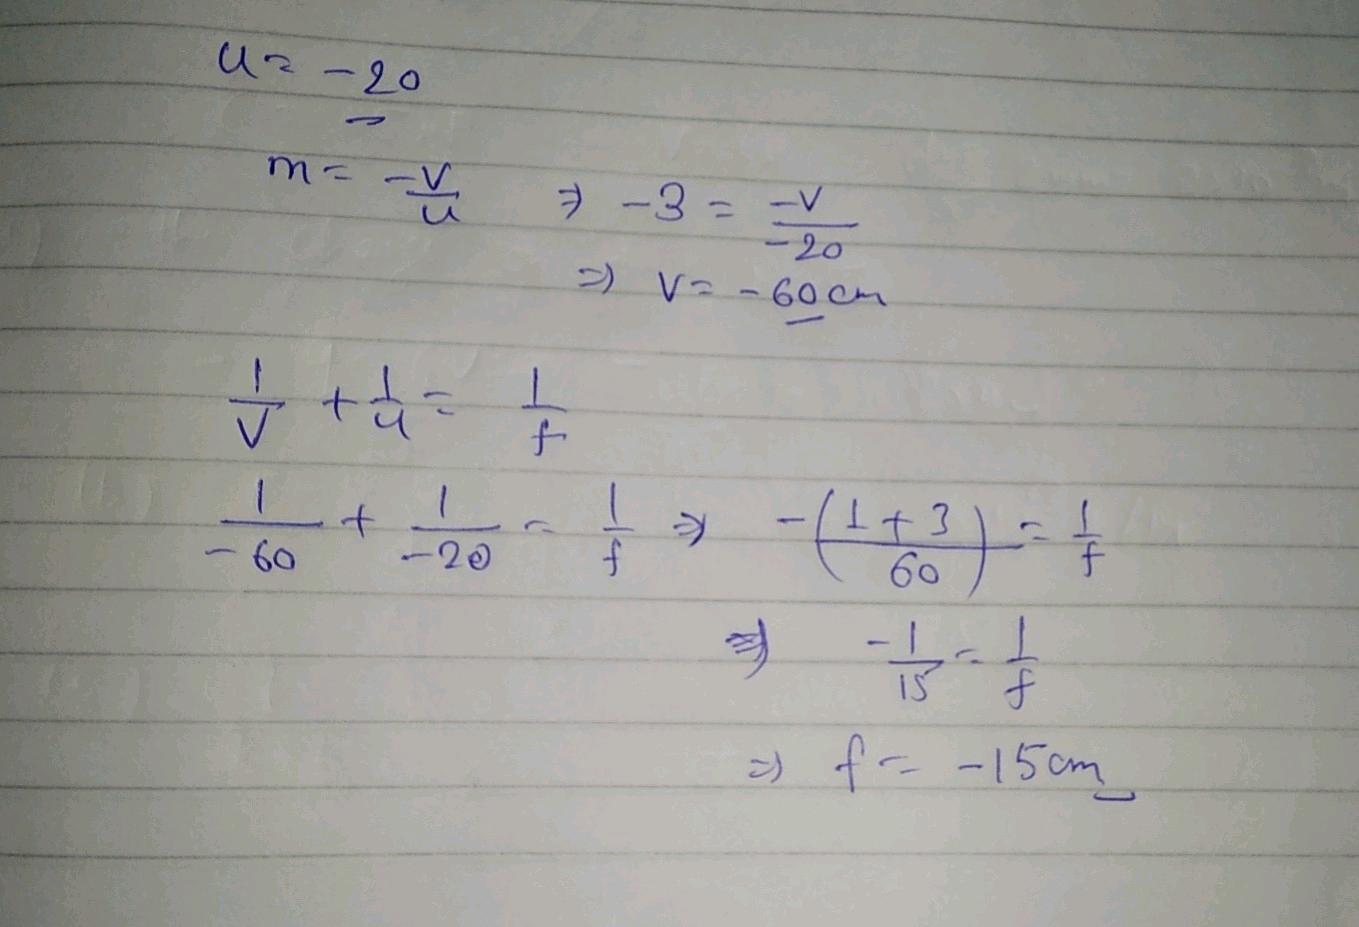 u = -20
m = -v/u ⇒ -3 = -v/-20
⇒ v = -60 cm
1/v + 1/u = 1/f
1/-60 + 1/-20 = 1/f ⇒ -(1+3/60) = 1/f
⇒ -1/15 = 1/f
⇒ f = -15 cm